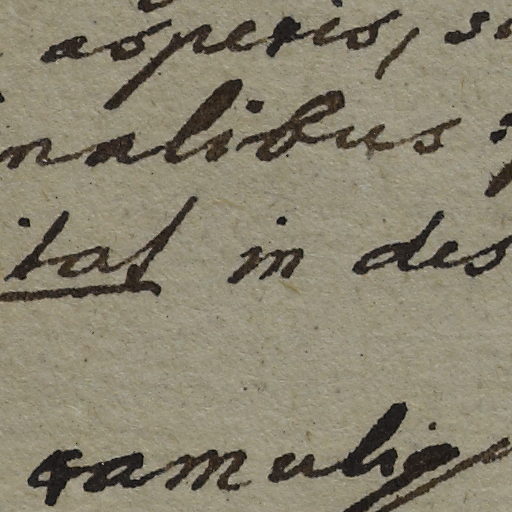 asperis, s
nalibus
itat in des
ramulis